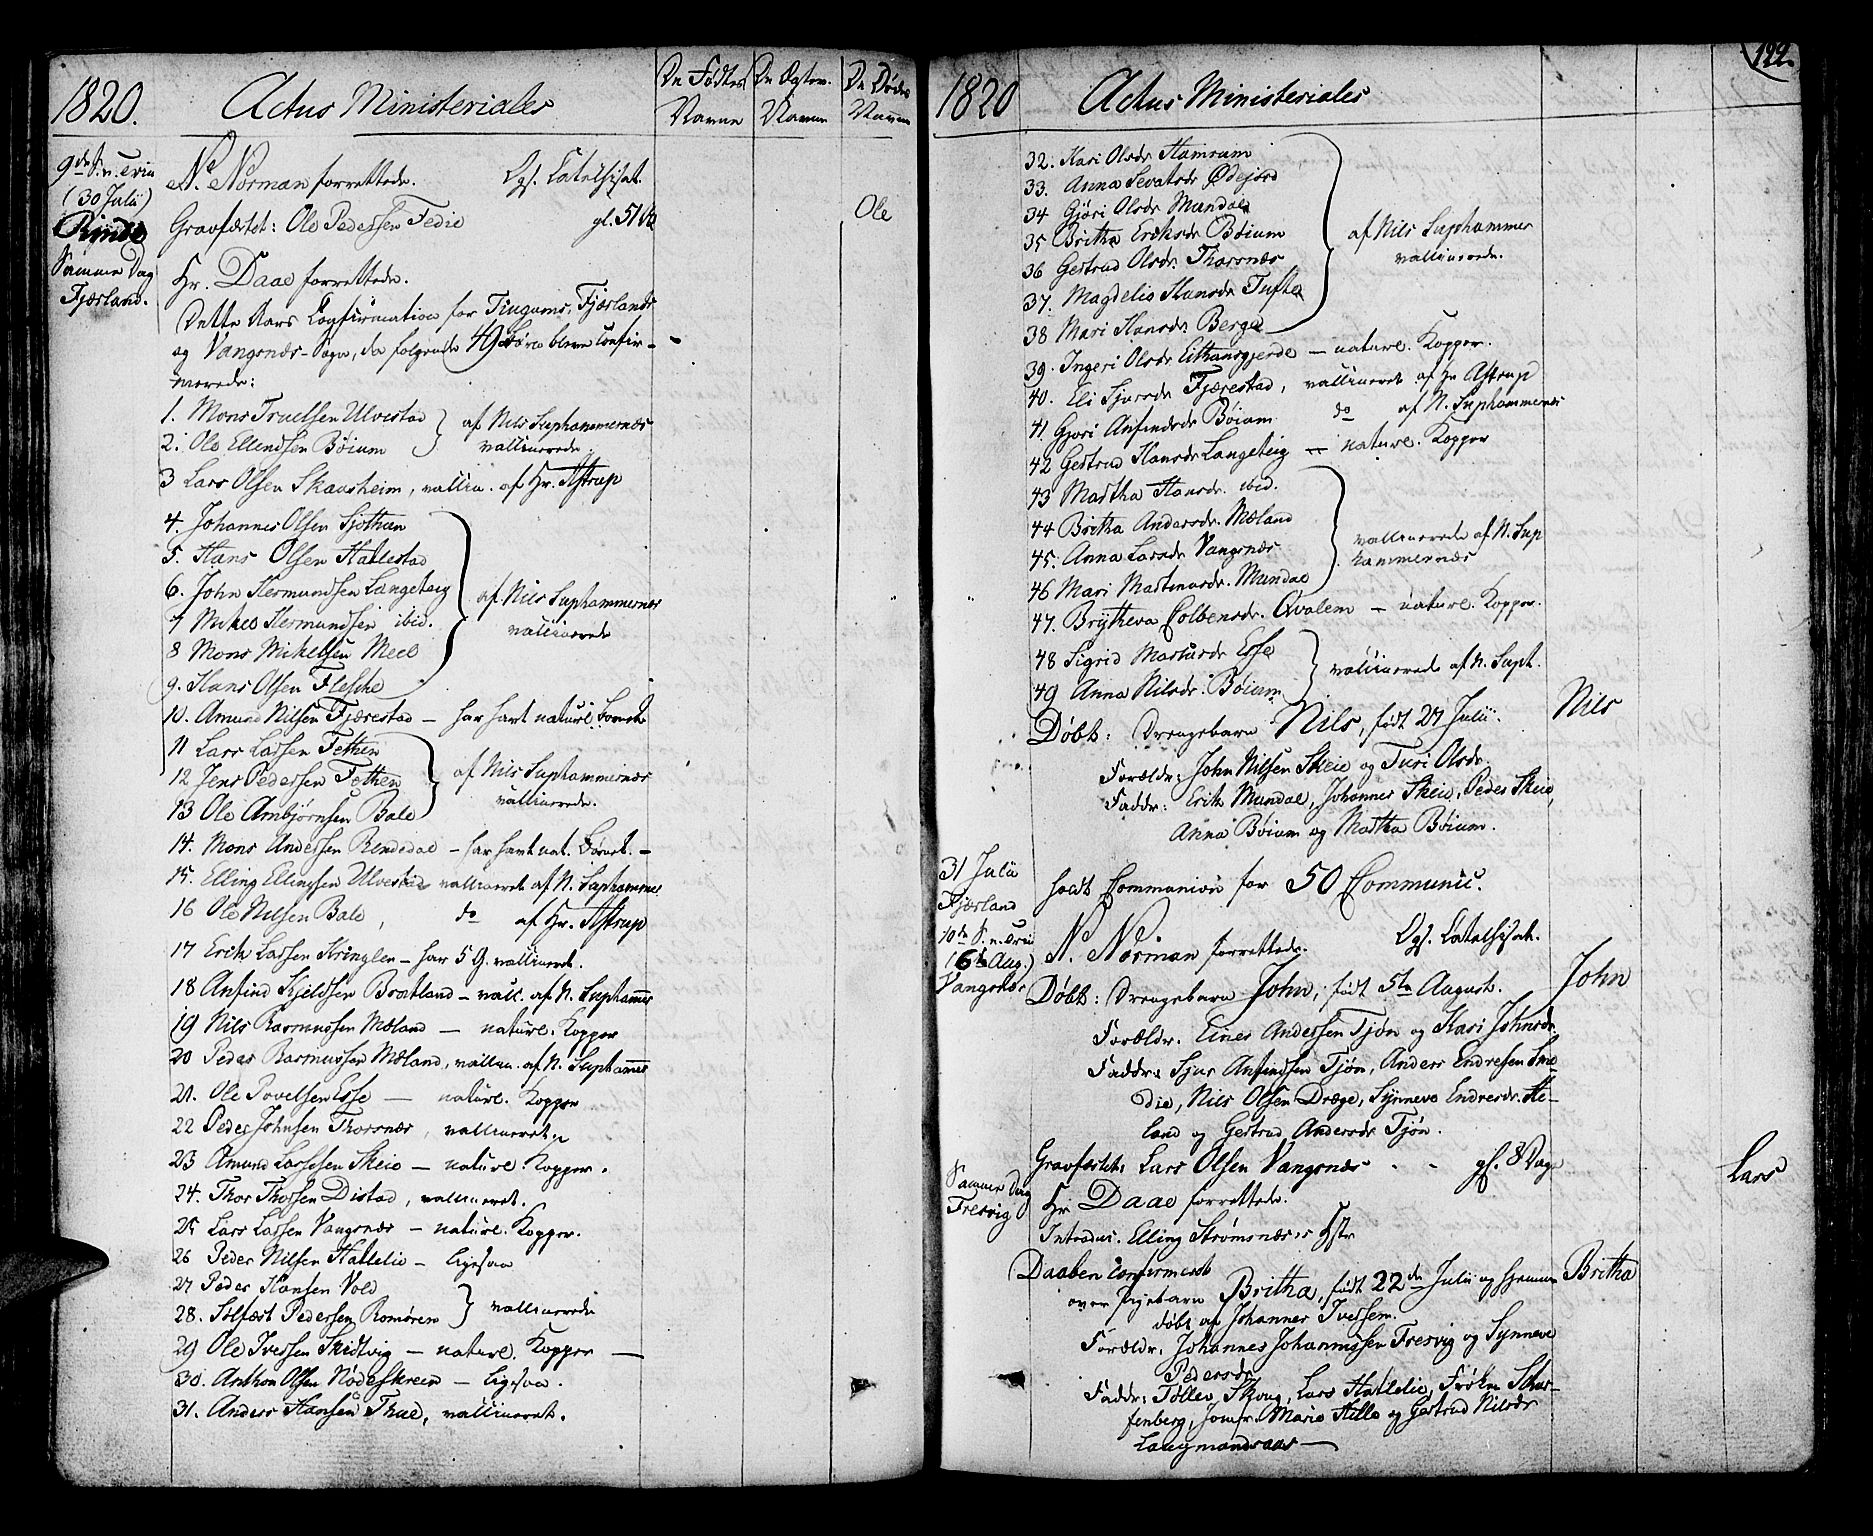 1820.
Actus Ministeriales
De Fødtes
Navne
De Ægtev.
Navne
De Dødes
Navne
9de S. n. Trin
(30 Julii)
Rinde
N. Norman forrettede. Dgs. Catechisat.
Gravfæstet: Ole Pedersen Fedie gl. 51
Ole
Samme Dag
Fjærland.
Hr. Daae forrettede.
Dette Aars Confirmation for Tiugums, Fjærlands
og Vangsnæs-Sogn, da følgende 49 Børn bleve Confir-
merede:
1. Mons Truelsen Ulvestad
2. Ole Ellendsen Bøium
af Nils Suphammernæs
vaccinerede.
3 Lars Olsen Skaasheim, vaccin. af Hr. Astrup
4. Johannes Olsen Sjothun
5. Hans Olsen Hatlestad
6. John Hermundsen Langeteig
7 Mikel Hermundsen ibid.
8 Mons Mikelsen Meel
9. Hans Olsen Flesche
af Nils Suphammernæs
vaccinerede
10. Amund Nilsen Fjærestad – har havt naturl.
11 Lars Larsen Fethen
12 Jens Pedersen Fethen
13 Ole Arnbjørnsen Bale
af Nils Suphammernæs
vaccinerede.
14. Mons Andersen Rendedal – har havt nat.
15. Elling Ellingsen Ulvestad vaccineret af N. Suphammer
16 Ole Nilsen Bale, do af Hr. Astrup
17 Erik Larsen Kringlen – har 5 G. vaccineret.
18 Anfind Kjeldsen Brætland – vacc. af N. Suphammer
19 Nils Rasmussen Mæland — naturl. Kopper
20 Peder Rasmussen Mæland, vaccin. af N. Suphammer
21. Ole Povelsen Esse — naturl. Kopper
22 Peder Johnsen Thorsnæs, vaccineret.
23 Amund Larsen Skeie — naturl. Kopper.
24. Thor Thorsen Distad, vaccineret.
25 Lars Larsen Vangsnæs – naturl. Kopper.
26 Peder Nilsen Hatlelie – ligesaa
27 Peder Hansen Vold
28. Solfæst Pedersen Romøren
vaccinerede
29 Ole Iversen Skidtvig – naturl. Kopper
30. Anthon Olsen Nødeskreen – ligesaa.
31. Anders Hansen Thue, vaccineret.
1820
Actus Ministeriales
122.
32. Kari Olsdr Hamrum
33. Anna Sevatsdr Ødejord
34 Gjøri Olsdr Mundal
35 Britha Eriksdr Bøium
36 Gertrud Olsdr. Thorsnæs
37. Magdelie Hansdr Tufte
38 Mari Hansdr Berge
af Nils Suphammer
vaccinerede.
39. Ingeri Olsdr Eithansgjerde – naturl. Kopper.
40. Eli Sjursdr Fjærestad, vaccineret af Hr Astrup
41 Gjøri Anfindsdr Bøium do af N. Suphammernæs
42 Gertrud Hansdr Langeteig – naturl. Kopper
43 Martha Hansdr. ibid.
44 Britha Andersdr. Mæland
45. Anna Larsdr Vangsnæs
46 Mari Martinusdr. Mundal
vaccinerede af N. Sup
hammernæs
47. Brytheva Colbensdr. Qvalem – naturl. Kopper.
48 Sigrid Martusdr Esse
49 Anna Nilsdr. Bøium
vaccinerede af N. Suph.
Døbt: Drengebarn Nils, født 27 Julii.
Nils
Forældr: John Nilsen Skeie og Turi Olsdr.
Faddr: Erik Mundal, Johannes Skeie, Peder Skeie,
Anna Bøium og Martha Bøium.
31 Julii
Fjærland
holdt Communion for 50 Communic.
10de S. n. Trin
(6te Aug.)
Vangsnæs
N. Norman forrettede. Dgs. Catechisat.
Døbt: Drengebarn John, født 5te August.
John
Forældr. Einer Andersen Tjøn og Kari Johnsdr
Faddr: Sjur Anfindsen Tjøn, Anders Endresen Sme-
die, Nils Olsen Dræge, Synneve Endresdr. He-
land og Gertrud Andersdr Tjøn.
Gravfæstet: Lars Olsen Vangsnæs gl. 8 Dage
Lars
Samme Dag
Fresvig
Hr. Daae forrettede.
Introduc. Elling Strømsnæs's Hstr
Daaben confirmeret
over Pigebarn Britha, født 22de Julii og hjemme
Britha
døbt af Johannes Iversen.
Forældr. Johannes Johannssen Fresvig og Synneve
Pedersdr
Faddr: Tollev Skoug, Lars Hatlelie, Frøken Schar-
fenberg, Jomfr. Marie Helle og Gertrud Nilsdr
Langmandsaas —